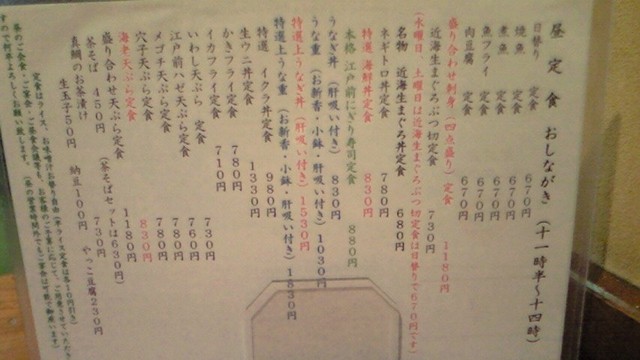 昼定食 おしながき （十一時半～十四時）
日替り 定食 670円
焼魚 定食 670円
煮魚 定食 670円
魚フライ 定食 670円
肉豆腐 定食 670円
盛り合わせ刺身（四点盛り）定食 1180円
近海生まぐろぶつ切定食 730円
（水曜日、土曜日は近海生まぐろぶつ切定食は日替りで670円です）
名物 近海生まぐろ丼定食 680円
ネギトロ丼定食 780円
特選 海鮮丼定食 830円
本格 江戸前にぎり寿司定食 880円
うなぎ丼（肝吸い付き）830円
うな重（お新香・小鉢・肝吸い付き）1030円
特選上うなぎ丼（肝吸い付き）1530円
特選上うな重（お新香・小鉢・肝吸い付き）1830円
特選 イクラ丼定食 980円
生ウニ丼定食 1330円
かきフライ定食 780円
イカフライ定食 710円
いわし天ぷら 定食 730円
江戸前ハゼ天ぷら定食 760円
メゴチ天ぷら定食 780円
穴子天ぷら定食 780円
海老天ぷら定食 830円
盛り合わせ天ぷら定食 1180円
茶そば 450円（茶そばセットは630円）
真鯛のお茶漬け 730円
生玉子50円 納豆100円 やっこ豆腐230円
定食はライス、お味噌汁お替り自由（半ライス定食は各10円引き）
茶のご会食・ご宴会・ご茶会会議等も、お客様のご予算に応じて、ご用意させていただき
すので何卒よろしくお願い致します。（茶の営業時間外でもご宴会は可能で御座います）